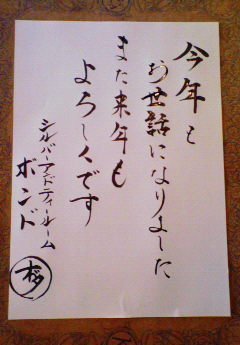 今年も
お世話になりました
また来年も
よろしくです
シルバーアンドティールーム
ボンド